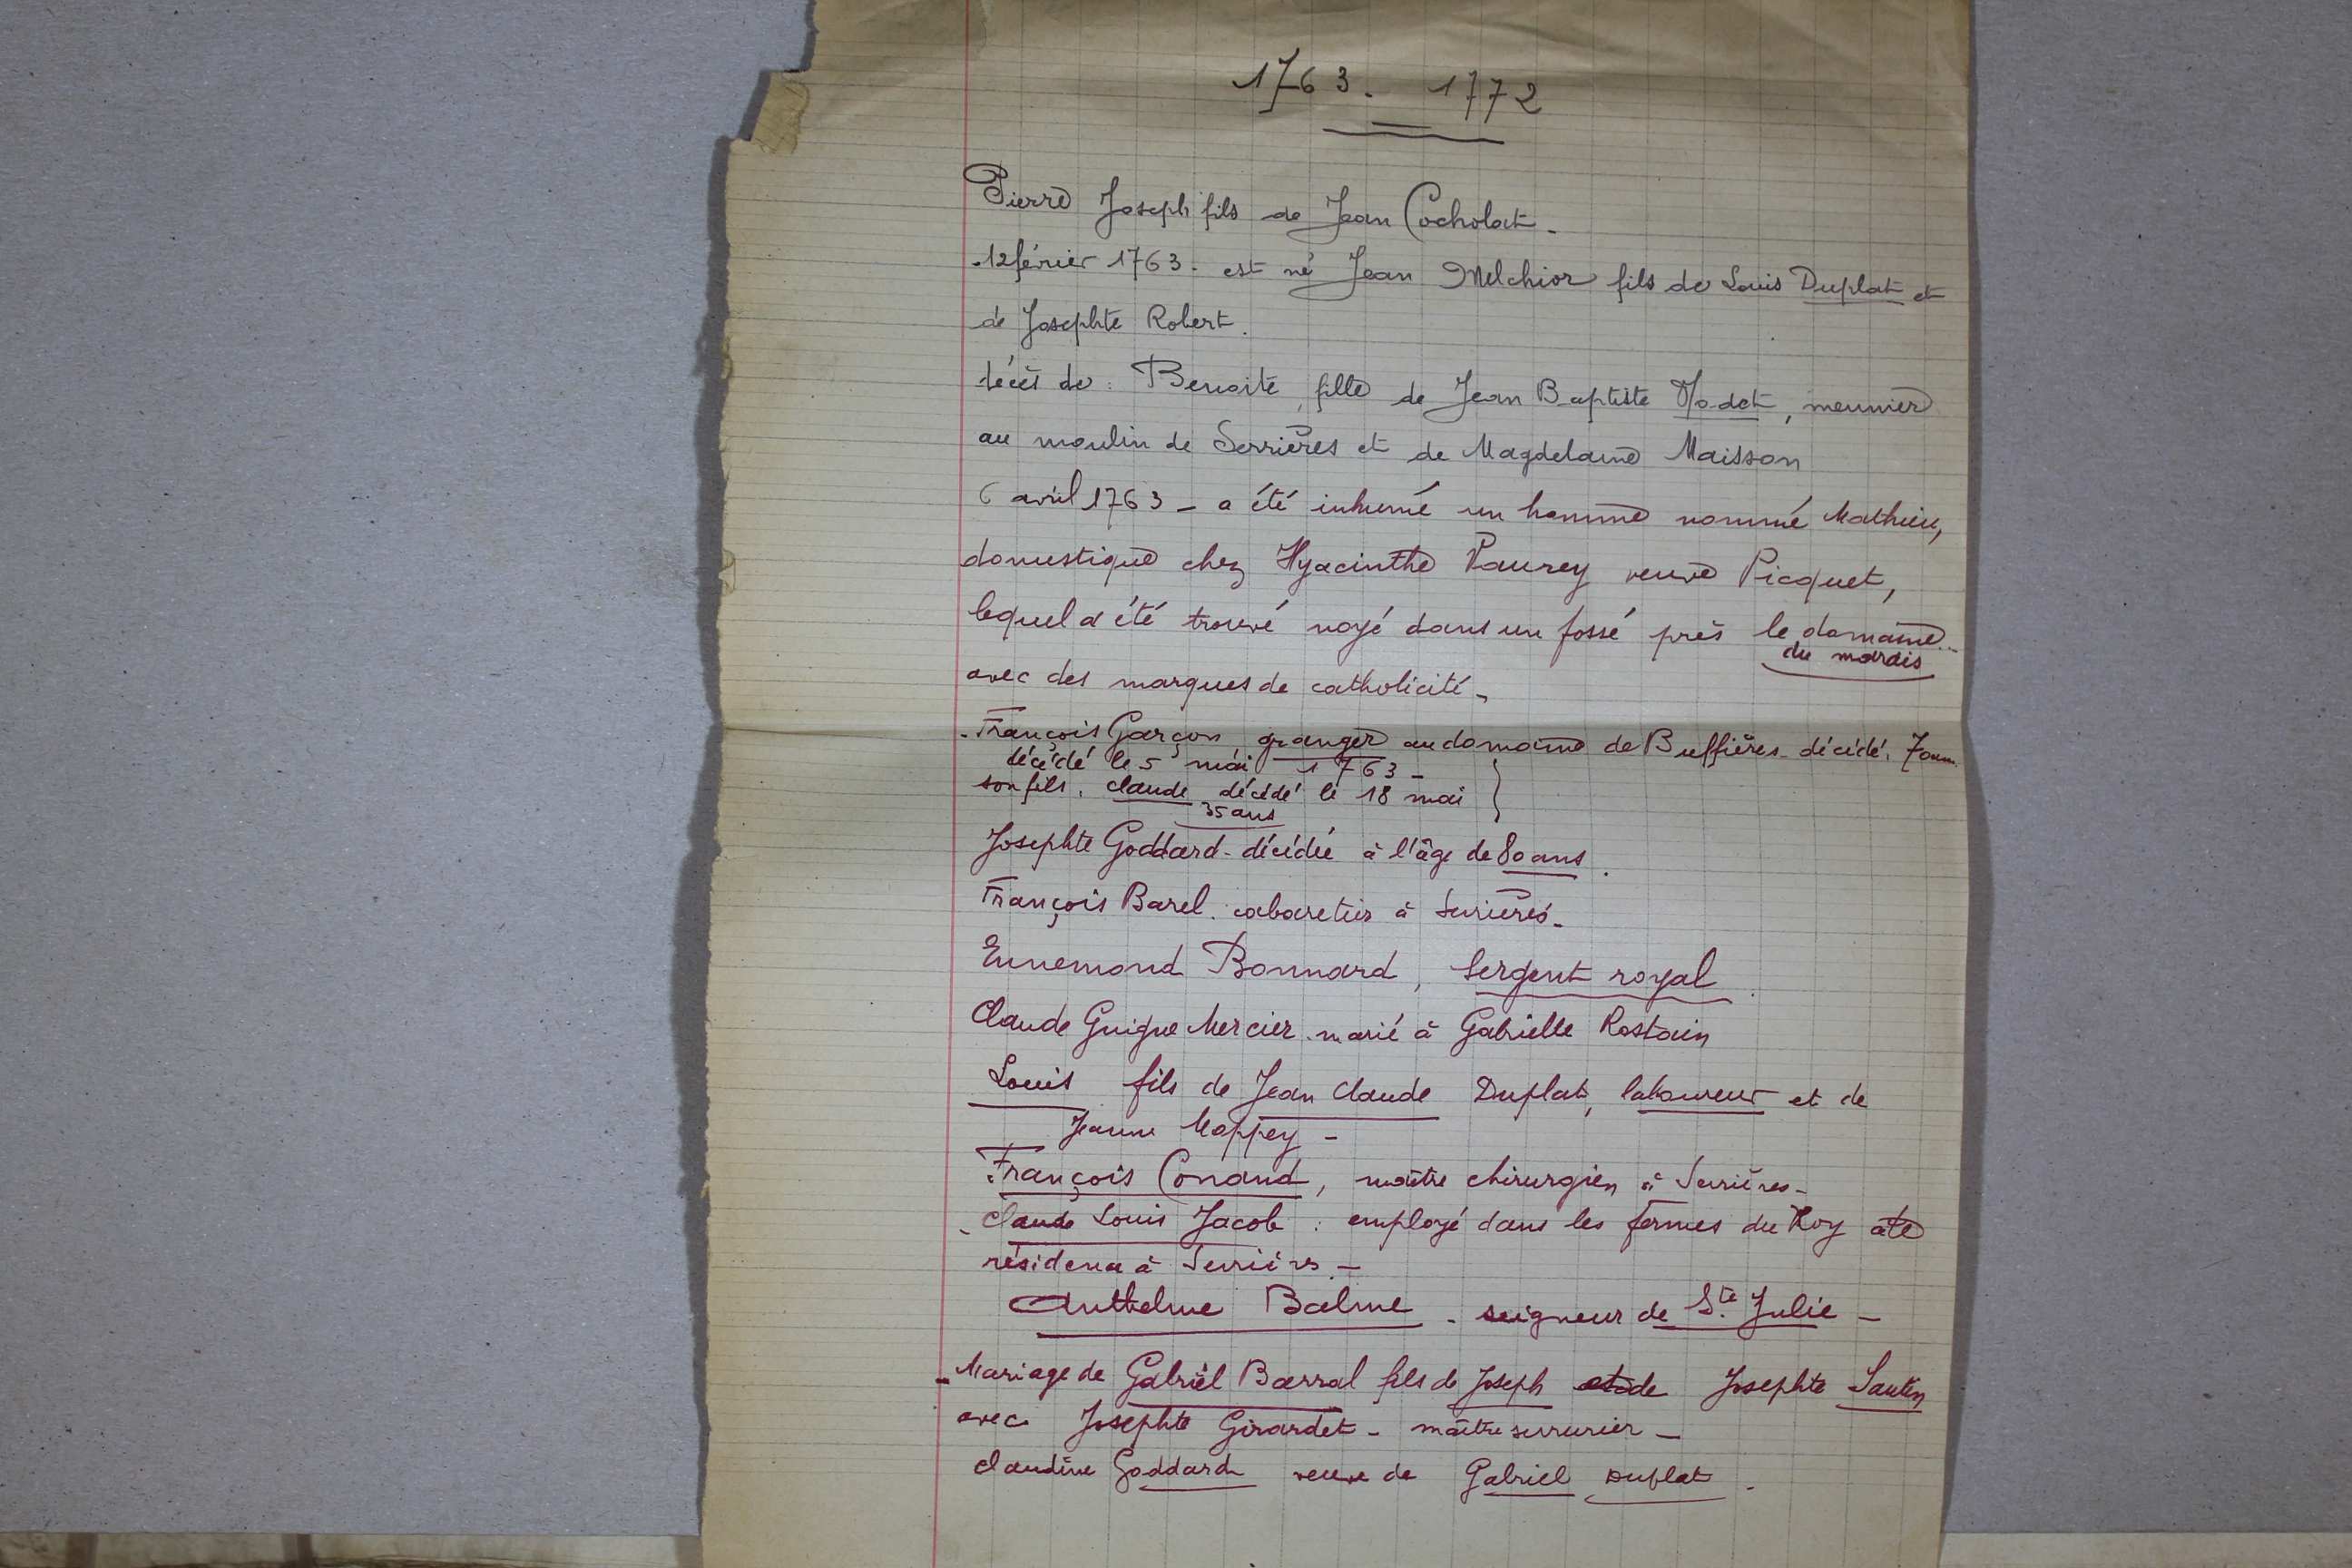 1763. 1772
Pierre Joseph fils de Jean Cocholat.
.12 février 1763. est né Jean Melchior fils de Louis Duplat et
de Josephte Robert.
décès de : Benoite, fille de Jean Baptiste Modet, meunier
au moulin de Serrières et de Magdelaine Maisson
6 avril 1763 - a été inhumé un homme nommé Mathieu,
domestique chez Hyacinthe Vaurey veuve Picquet,
lequel a été trouvé noyé dans un fossé près le domaine
du marais
avec des marques de catholicité -
- François Garçon granger au domaine de Buffières - décédé.
décédé le 5 mai 1763 -
son fils. Claude décédé le 18 mai
35 ans
Josephte Goddard - décédée à l'âge de 80 ans.
François Barel. cabaretier à Serrières.
Ennemond Bonnard, Sergent royal.
Claude Guigue Mercier. marié à Gabrielle Rostain
Louis fils de Jean Claude Duplat, laboureur et de
Jeanne Moppey -
François Conand, maître chirurgien à Serrières -
- Claude Louis Jacob : employé dans les fermes du Roy à la
résidence à Serrières. -
Anthelme Balme. seigneur de Ste Julie -
- Mariage de Gabriel Barral fils de Joseph et de Josephte Santin
avec Josephte Girardet - maître serrurier -
Claudine Goddard veuve de Gabriel Duplat.